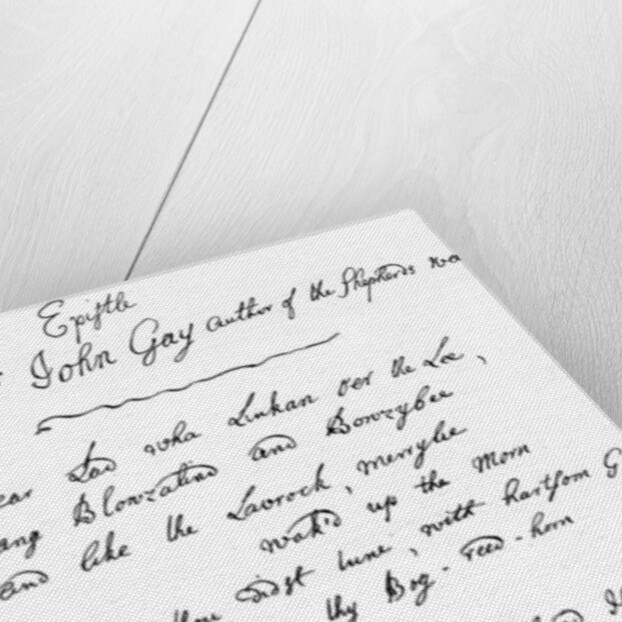 Epistle
John Gay author of the Shepherds
Lad wha Linkan oer the Lee,
Blowzalind and Bowzybee
and like the Lavrock, merrylie
wak'd up the Morn
thou didst tune, with hartsom
thy Bog-reed-horn